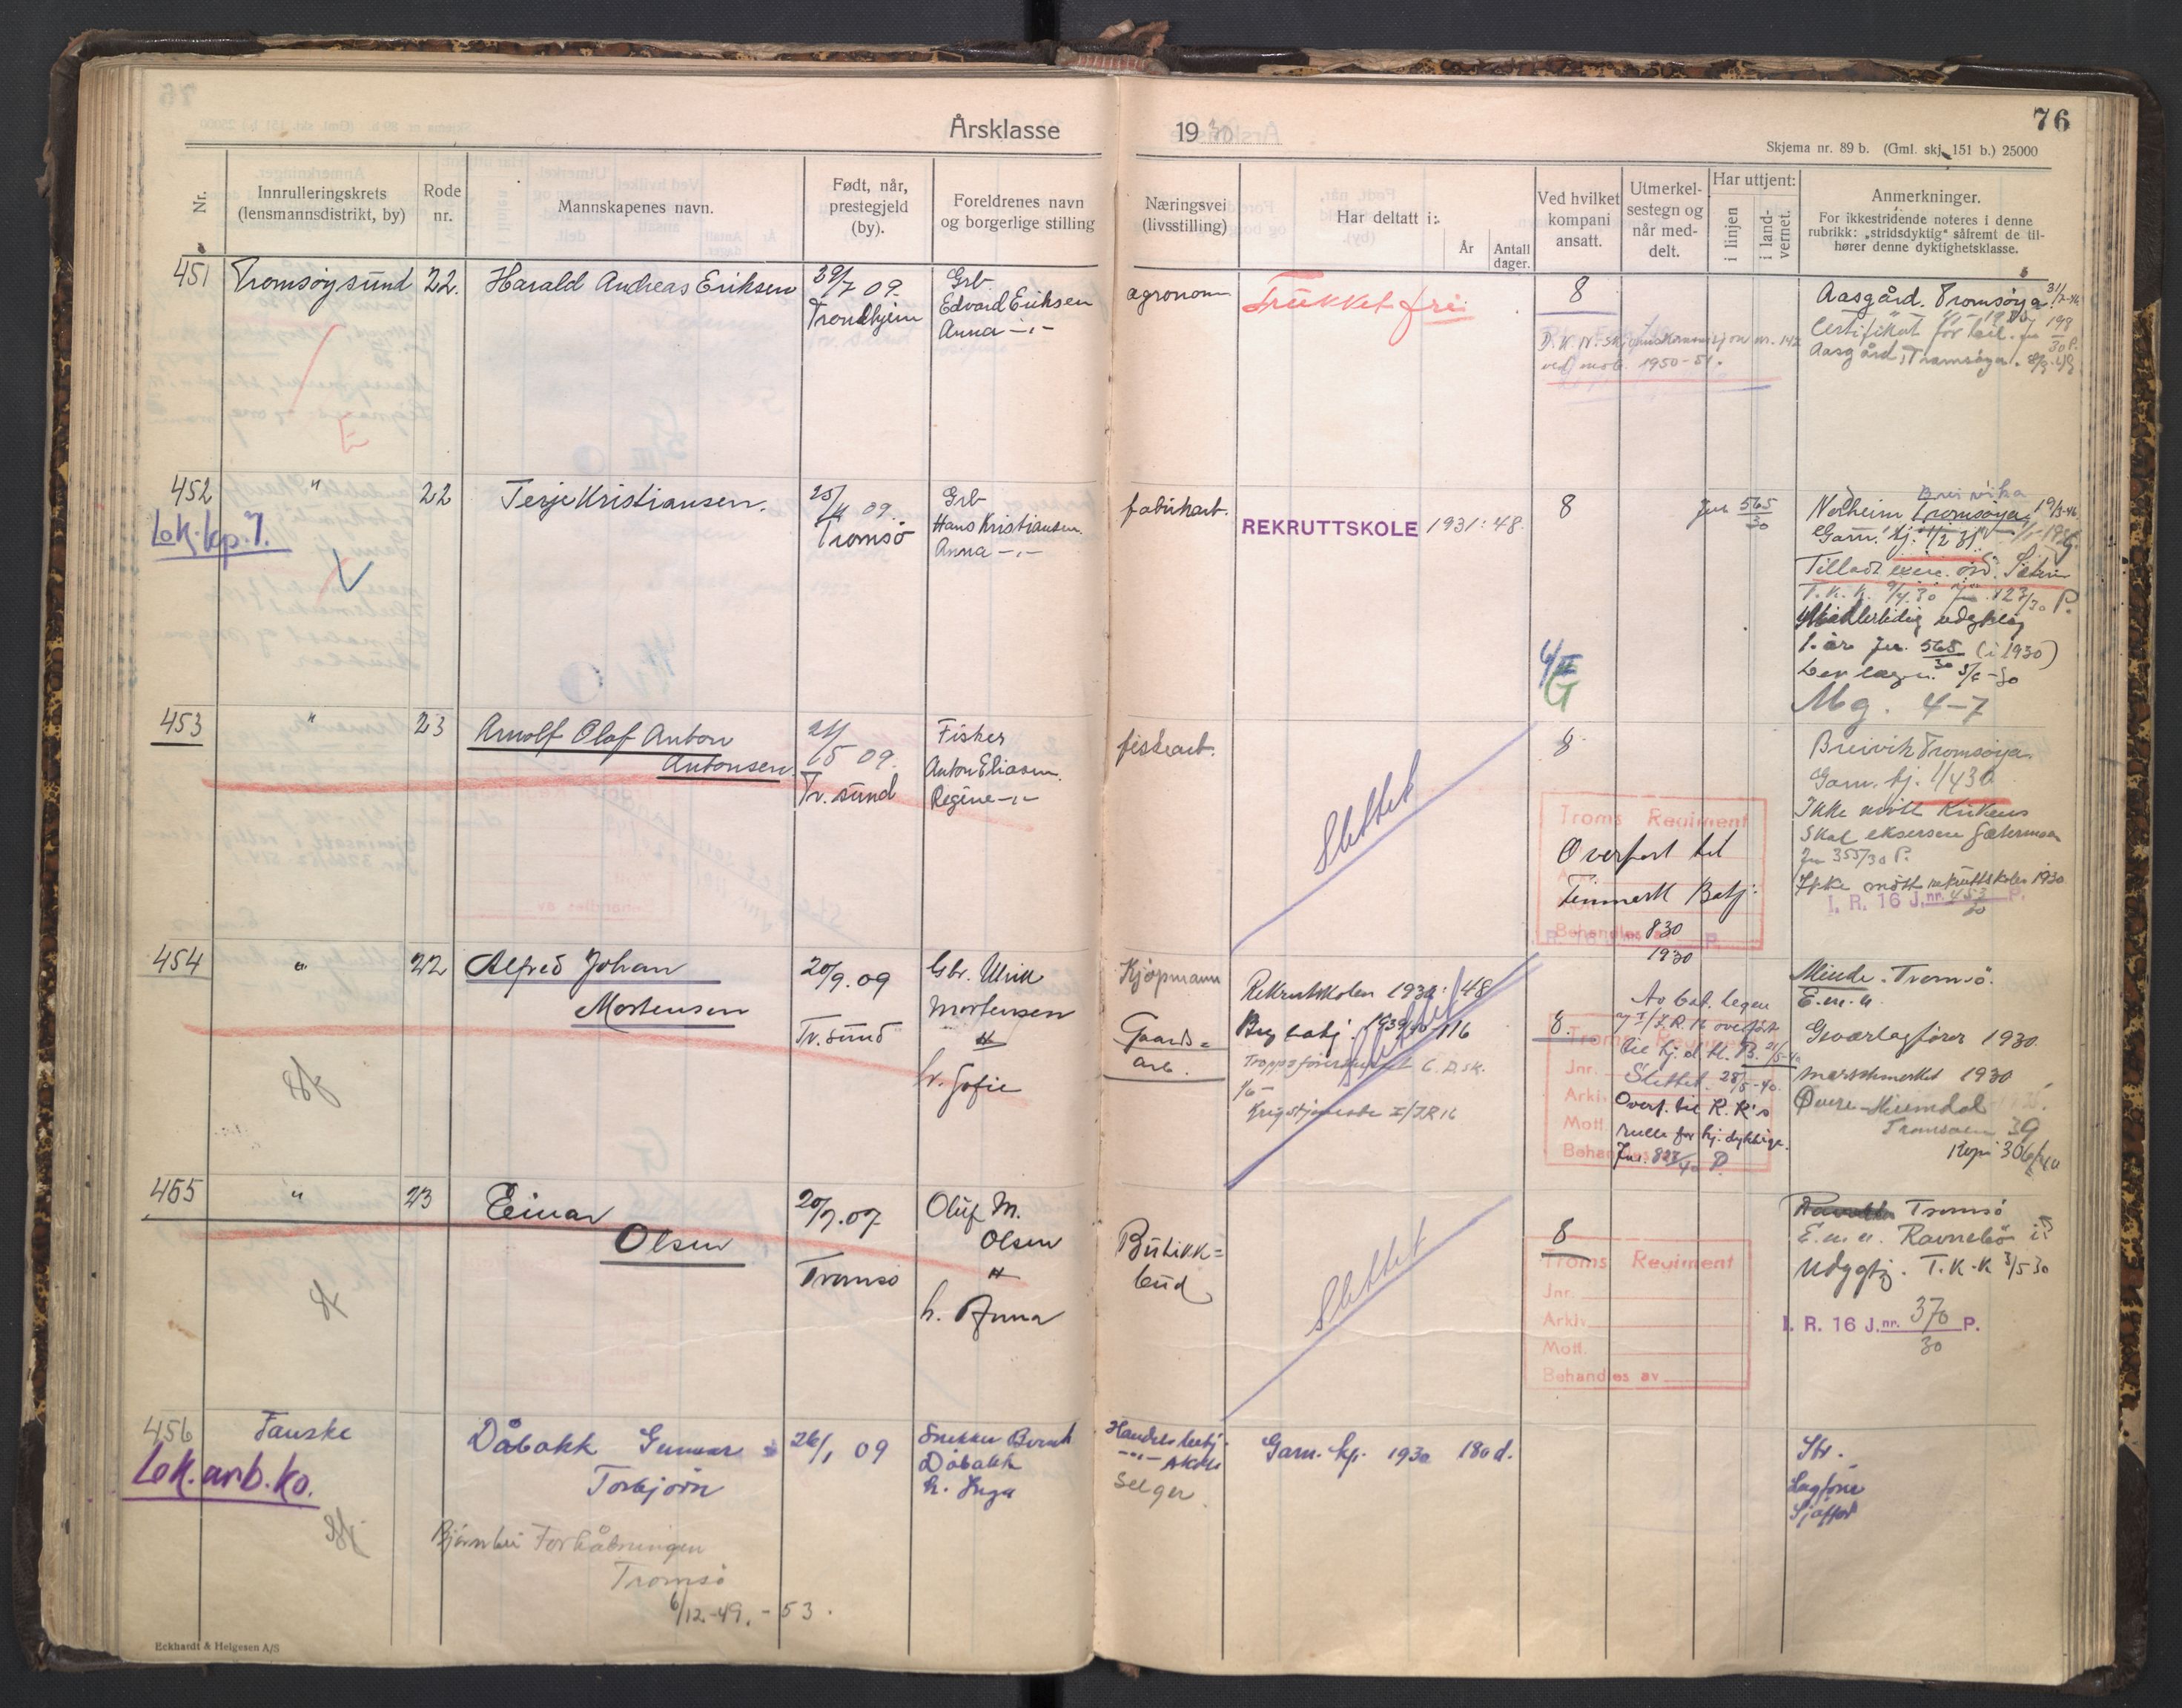 76
Årsklasse 1930
Skjema nr. 89 b. (Gml. skj. 151 b.) 25000
Nr.
Innrulleringskrets
(lensmannsdistrikt, by)
Rode
nr.
Mannskapenes navn.
Født, når,
prestegjeld
(by).
Foreldrenes navn
og borgerlige stilling
Næringsvei
(livsstilling)
Har deltatt i:
År
Antall
dager.
Ved hvilket
kompani
ansatt.
Utmerkel-
sestegn og
når med-
delt.
Har uttjent:
i linjen
i land-
vernet.
Anmerkninger.
For ikkestridende noteres i denne
rubrikk: „stridsdyktig" såfremt de til-
hører denne dyktighetsklasse.
451
Tromsøysund
22.
Harald Andreas Eriksen
39/7 09.
Trondhjem
Grb.
Edvard Eriksen
Anna -"-
agronom
Trukket fri
8
ved mob. 1950-51.
Aasgård. Tromsøya 31/7-46
Certifikat for bil. jn 198/30 P.
Aasgård, Tromsøya.
E
452
"
22
Terje Kristiansen.
25/4 09.
Tromsö
Grb
Hans Kristiansen.
Anna -"-
fabrikarb.
REKRUTTSKOLE 1931: 48.
8
Jnr 565/30
Lok.kp.7.
Breivika
Nordheim Tromsøya
Garn. kj. 1/2 31.
Tillatt exerc. ord. Setermoen
T.K.K. 9/4.30 jn. 123/30 P.
Midlertidig udyktig
1. år jnr. 565/30 (i 1930)
Mg. 4-7
4/II
G
453
"
23
Arnolf Olaf Anton
Antonsen.
21/5 09.
Tr. sund
Fisker
Anton Eliasen.
Regine -"-
fiskearb.
Slettet
8
Troms Regiment
Overført til
Finnmark Batj:
Behandles av
830
1930
Breivik Tromsøya.
Garn. kj. 1/430
Ikke møtt
Skal eksersere Sætermoen
Jn 355/30 P.
Ikke møtt rekruttskolen 1930
I. R. 16 J.nr. 453/30 P.
454
"
22
Alfred Johan
Mortensen
20/9.09
Tr. sund
Gbr. Ulrik
Mortensen
h. Sofie
Kjøpmann
Gaards=
arb.
Rekrutskolen 1930: 48
1939/40 116
Krigstjeneste I/IR 16
Slettet
8.
Troms Regiment
Jnr.
Arkiv.
Mott.
Behandles av
Av bat. legen
ved I/I.R. 16 overført
Slettet. 28/5-40.
Overf. til R. R's
rulle for hj. dyktige.
Jnr. 827/40 P.
Minde. Tromsö.
E.m.u.
Geværlagfører 1930.
marschmerket 1930
39
455
"
23
Einar
Olsen
20/7.07
Tromsö
Oluf M.
Olsen
h. Anna
Butikk=
bud
Slettet
8
Troms Regiment
Jnr.
Arkiv.
Mott.
Behandles av
Tromsö
E.m.u. Ravnebö
Udygtig. T.K.K 3/5 30
I. R. 16 J.nr. 370/30 P.
456
Fauske
Dåbakk Gunnar
Torbjörn
26/1 09
Snekker Bernh
Dåbakk
h. Inga
Handelsbetj.
Selger
Garn. kp. 1930 180 d.
Str.
Lagfører
Sjåfør
Lok.arb.ko.
Bjørnbu Forhåbningen
Tromsö
6/12-49.-53.
Eckhardt & Helgesen A/S